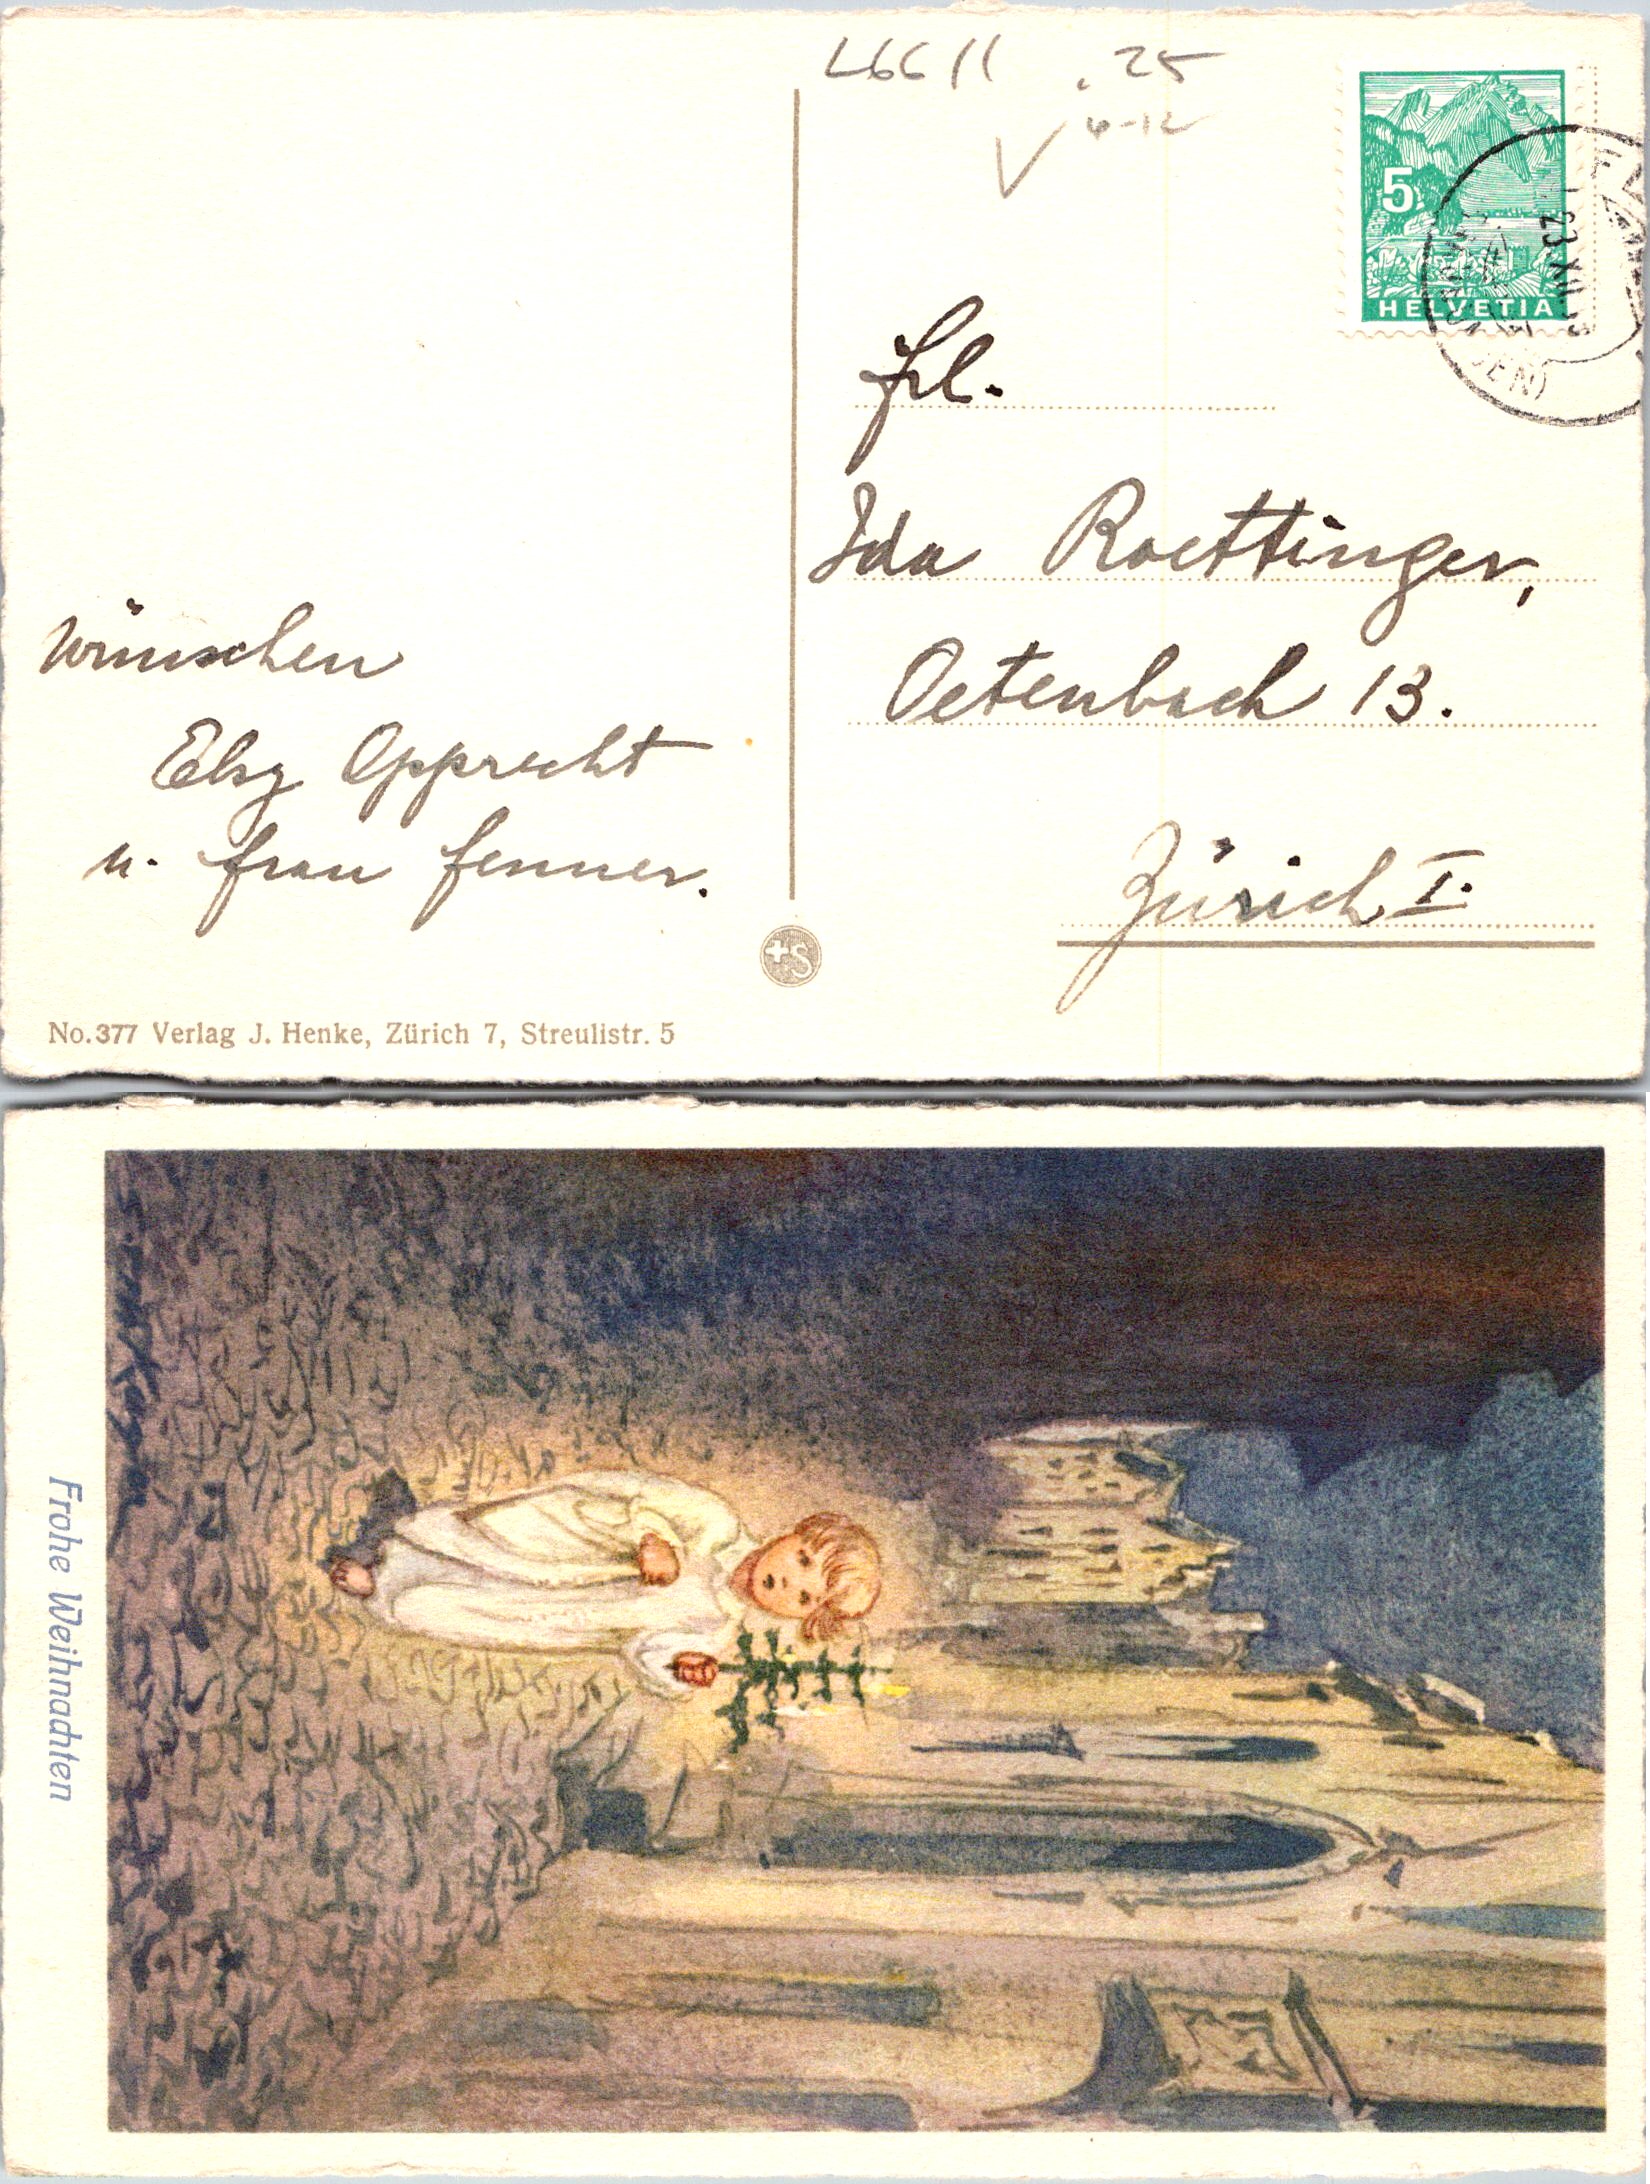 L6611 .25
6-12
5
HELVETIA
23.XII.3
frl.
Ida Roettinger,
Oetenbach 13.
Zürich I.
wünschen
Elsy Opprecht
u. frau fenner.
+S
No.377 Verlag J. Henke, Zürich 7, Streulistr. 5
Frohe Weihnachten